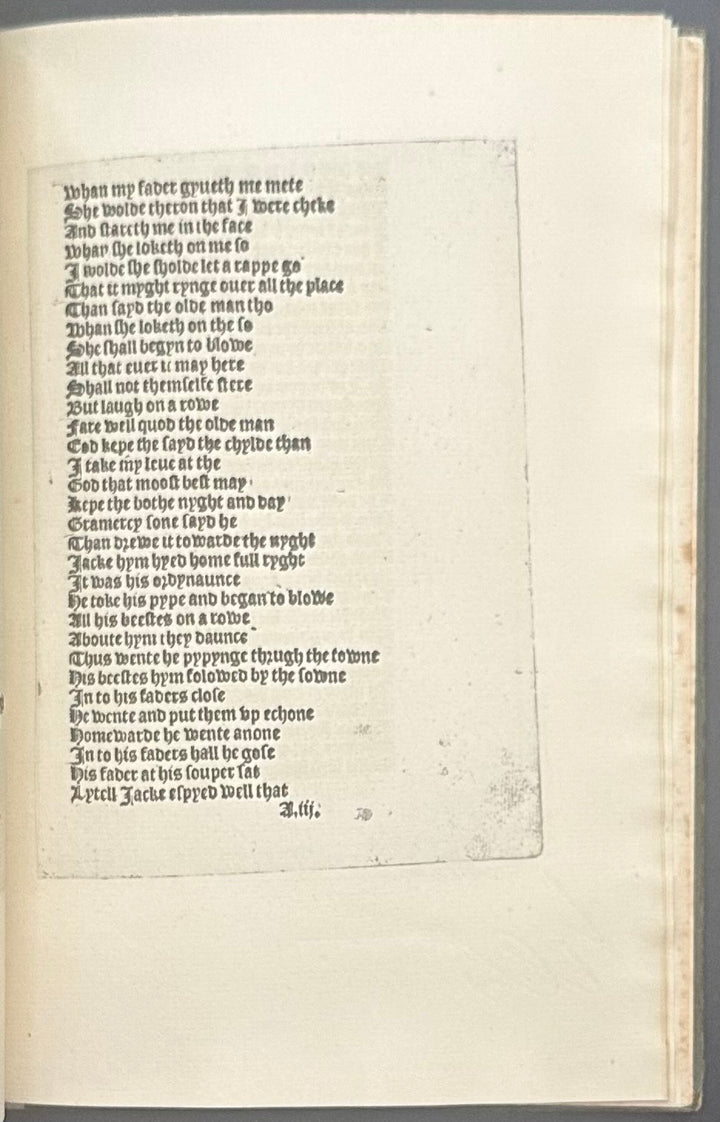 Whan my fader gyueth me mete
She wolde theron that I were cheke
And stareth me in the face
Whan she loketh on me so
I wolde she sholde let a rappe go
That it myght rynge ouer all the place
Than sayd the olde man tho
Whan she loketh on the so
She shall begyn to blowe
All that euer it may here
Shall not themselfe stere
But laugh on a rowe
Fare well quod the olde man
God kepe the sayd the chylde than
I take my leue at the
God that moost best may
Kepe the bothe nyght and day
Gramercy sone sayd he
Than drewe it towarde the nyght
Jacke hym hyed home full ryght
It was his ordynaunce
He toke his pype and began to blowe
All his beestes on a rowe
Aboute hym they daunce
Thus wente he pypynge thrugh the towne
His beestes hym folowed by the sowne
In to his faders close
He wente and put them vp echone
Homewarde he wente anone
In to his faders hall he gose
His fader at his souper sat
Lytell Jacke espyed well that
A.iij.